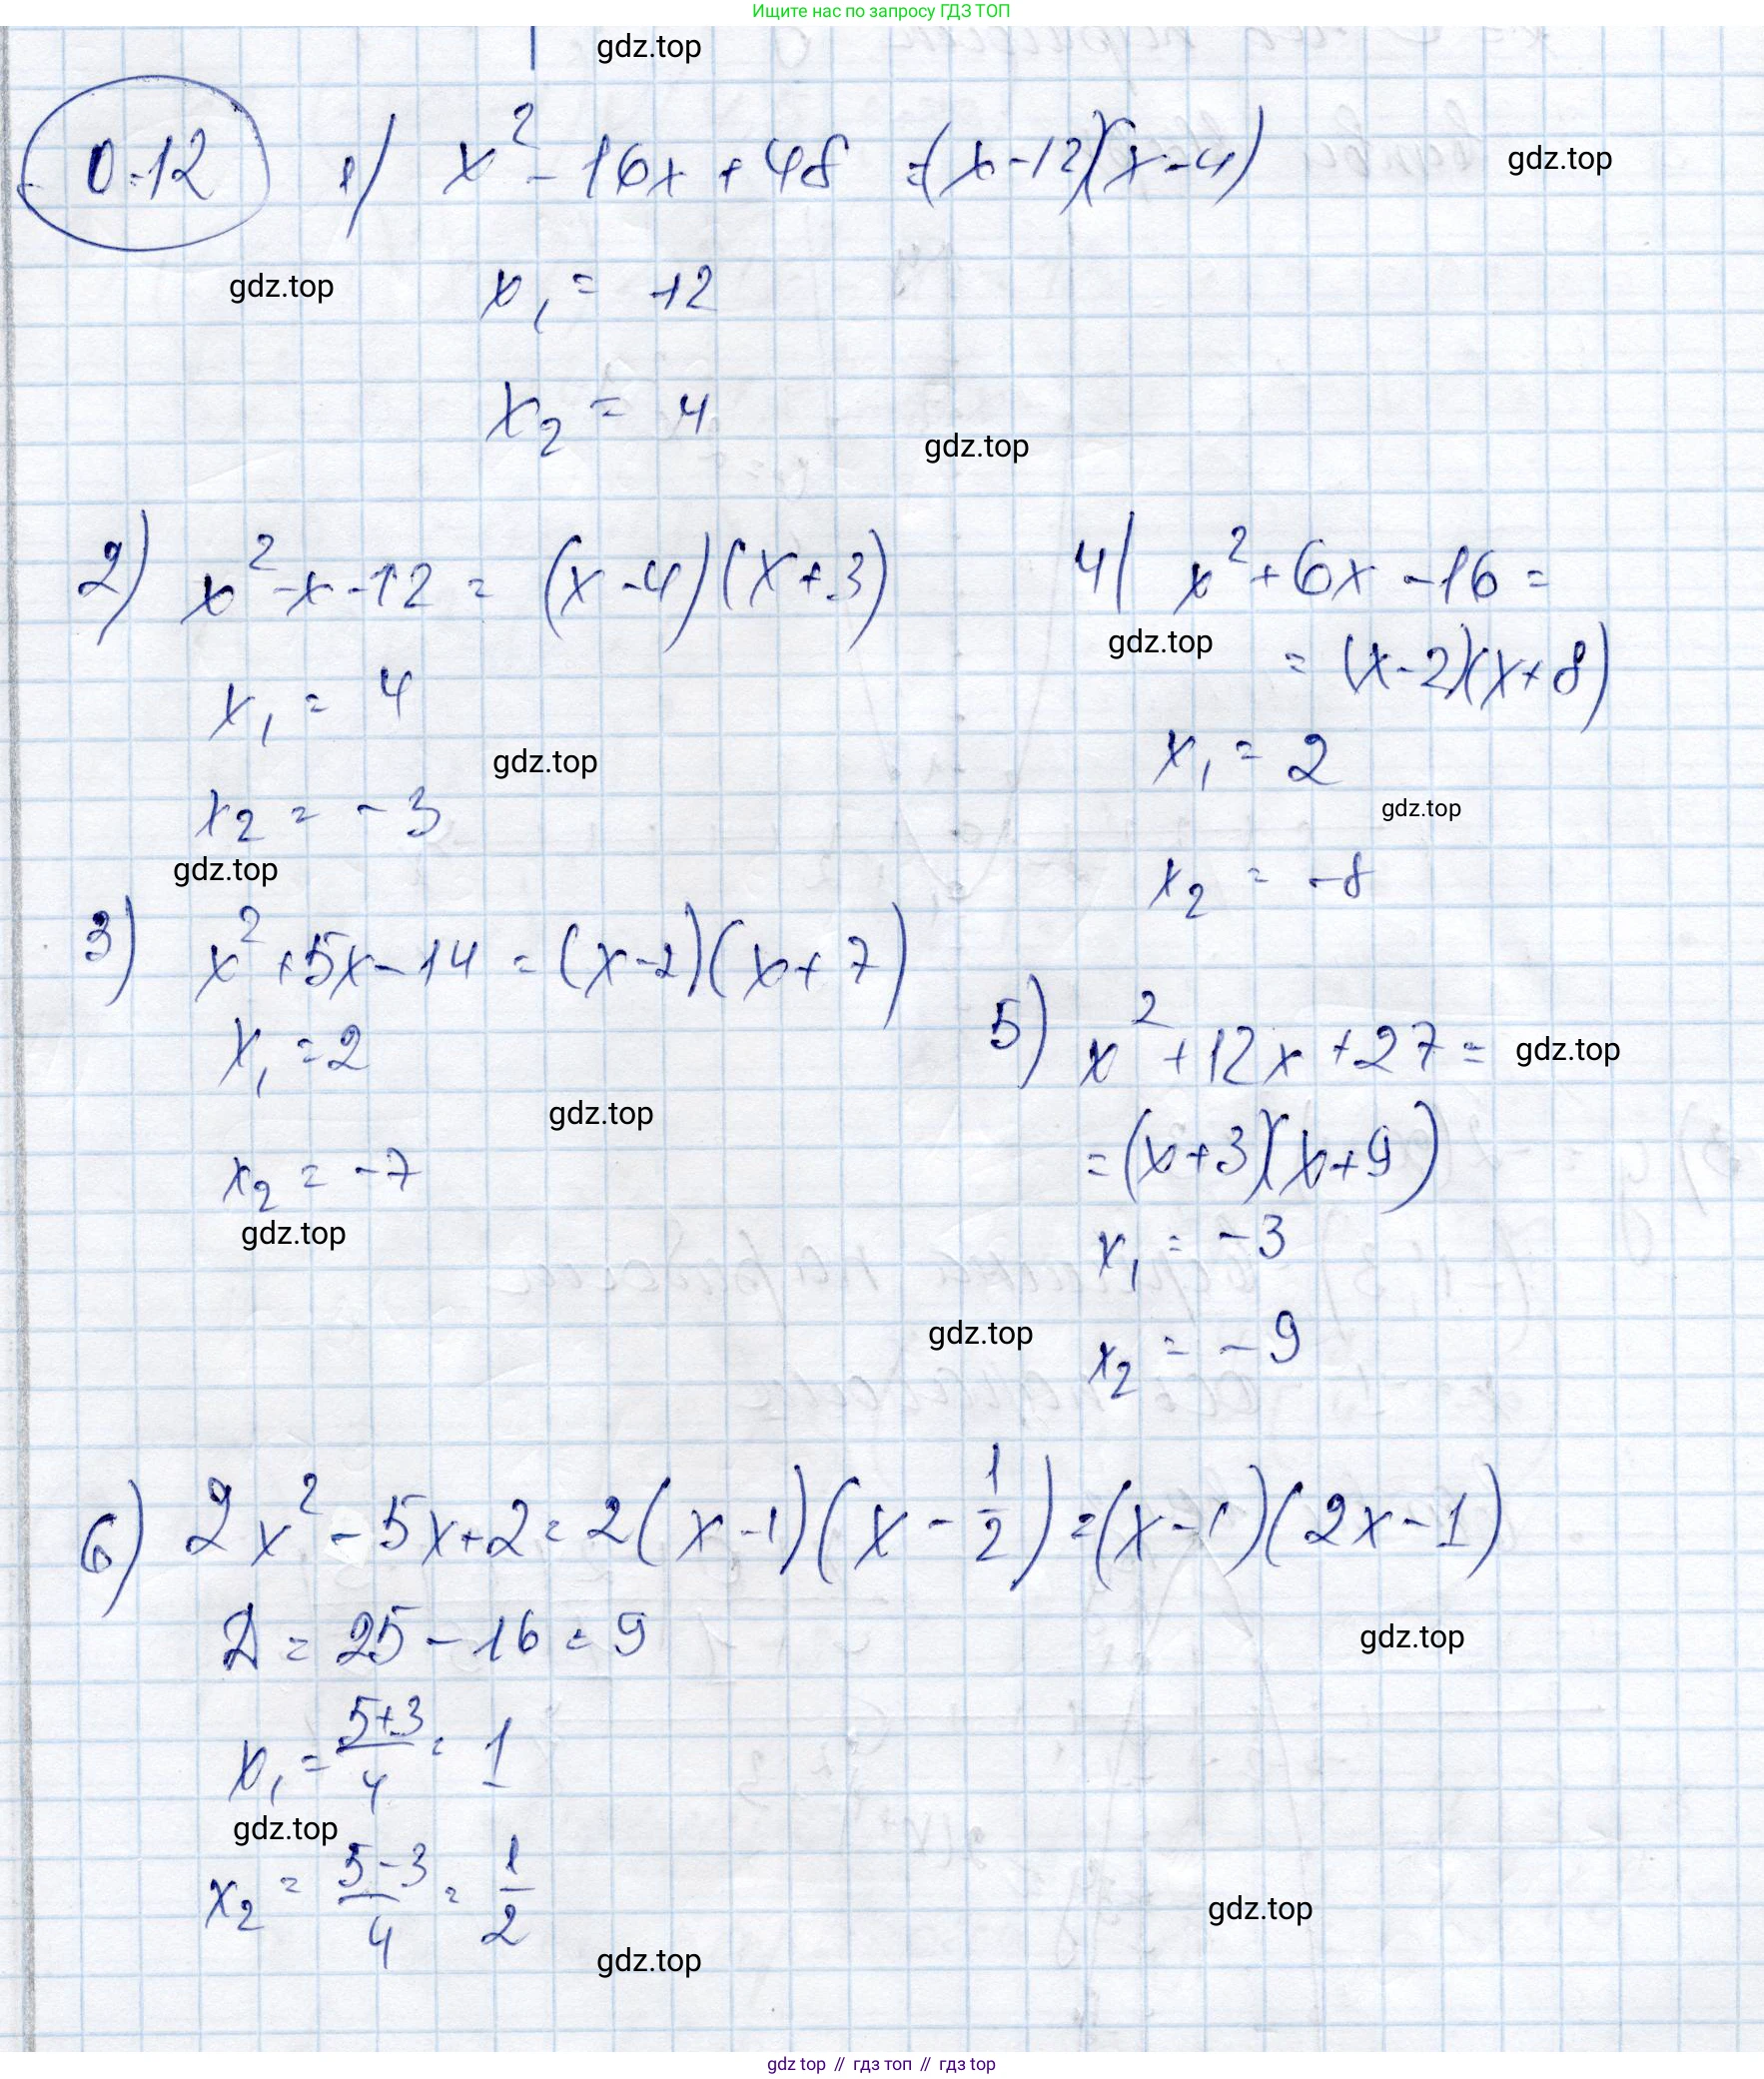 Ищите нас по запросу ГДЗ ТОП
gdz.top
0.12 1) x² - 16x + 48 = (x-12)(x-4)
gdz.top
gdz.top
x₁ = 12
x₂ = 4
gdz.top
2) x² - x - 12 = (x-4)(x+3)
x₁ = 4
gdz.top
x₂ = -3
gdz.top
4) x² + 6x - 16 =
gdz.top
= (x-2)(x+8)
x₁ = 2
gdz.top
x₂ = -8
3) x² + 5x - 14 = (x-2)(x+7)
x₁ = 2
gdz.top
x₂ = -7
gdz.top
5) x² + 12x + 27 =
gdz.top
= (x+3)(x+9)
x₁ = -3
gdz.top
x₂ = -9
6) 2x² - 5x + 2 = 2(x-1)(x - 1/2) = (x-1)(2x-1)
D = 25 - 16 = 9
gdz.top
x₁ = (5+3)/4 = 1
gdz.top
x₂ = (5-3)/4 = 1/2
gdz.top
gdz.top
gdz top // гдз топ // gdz top